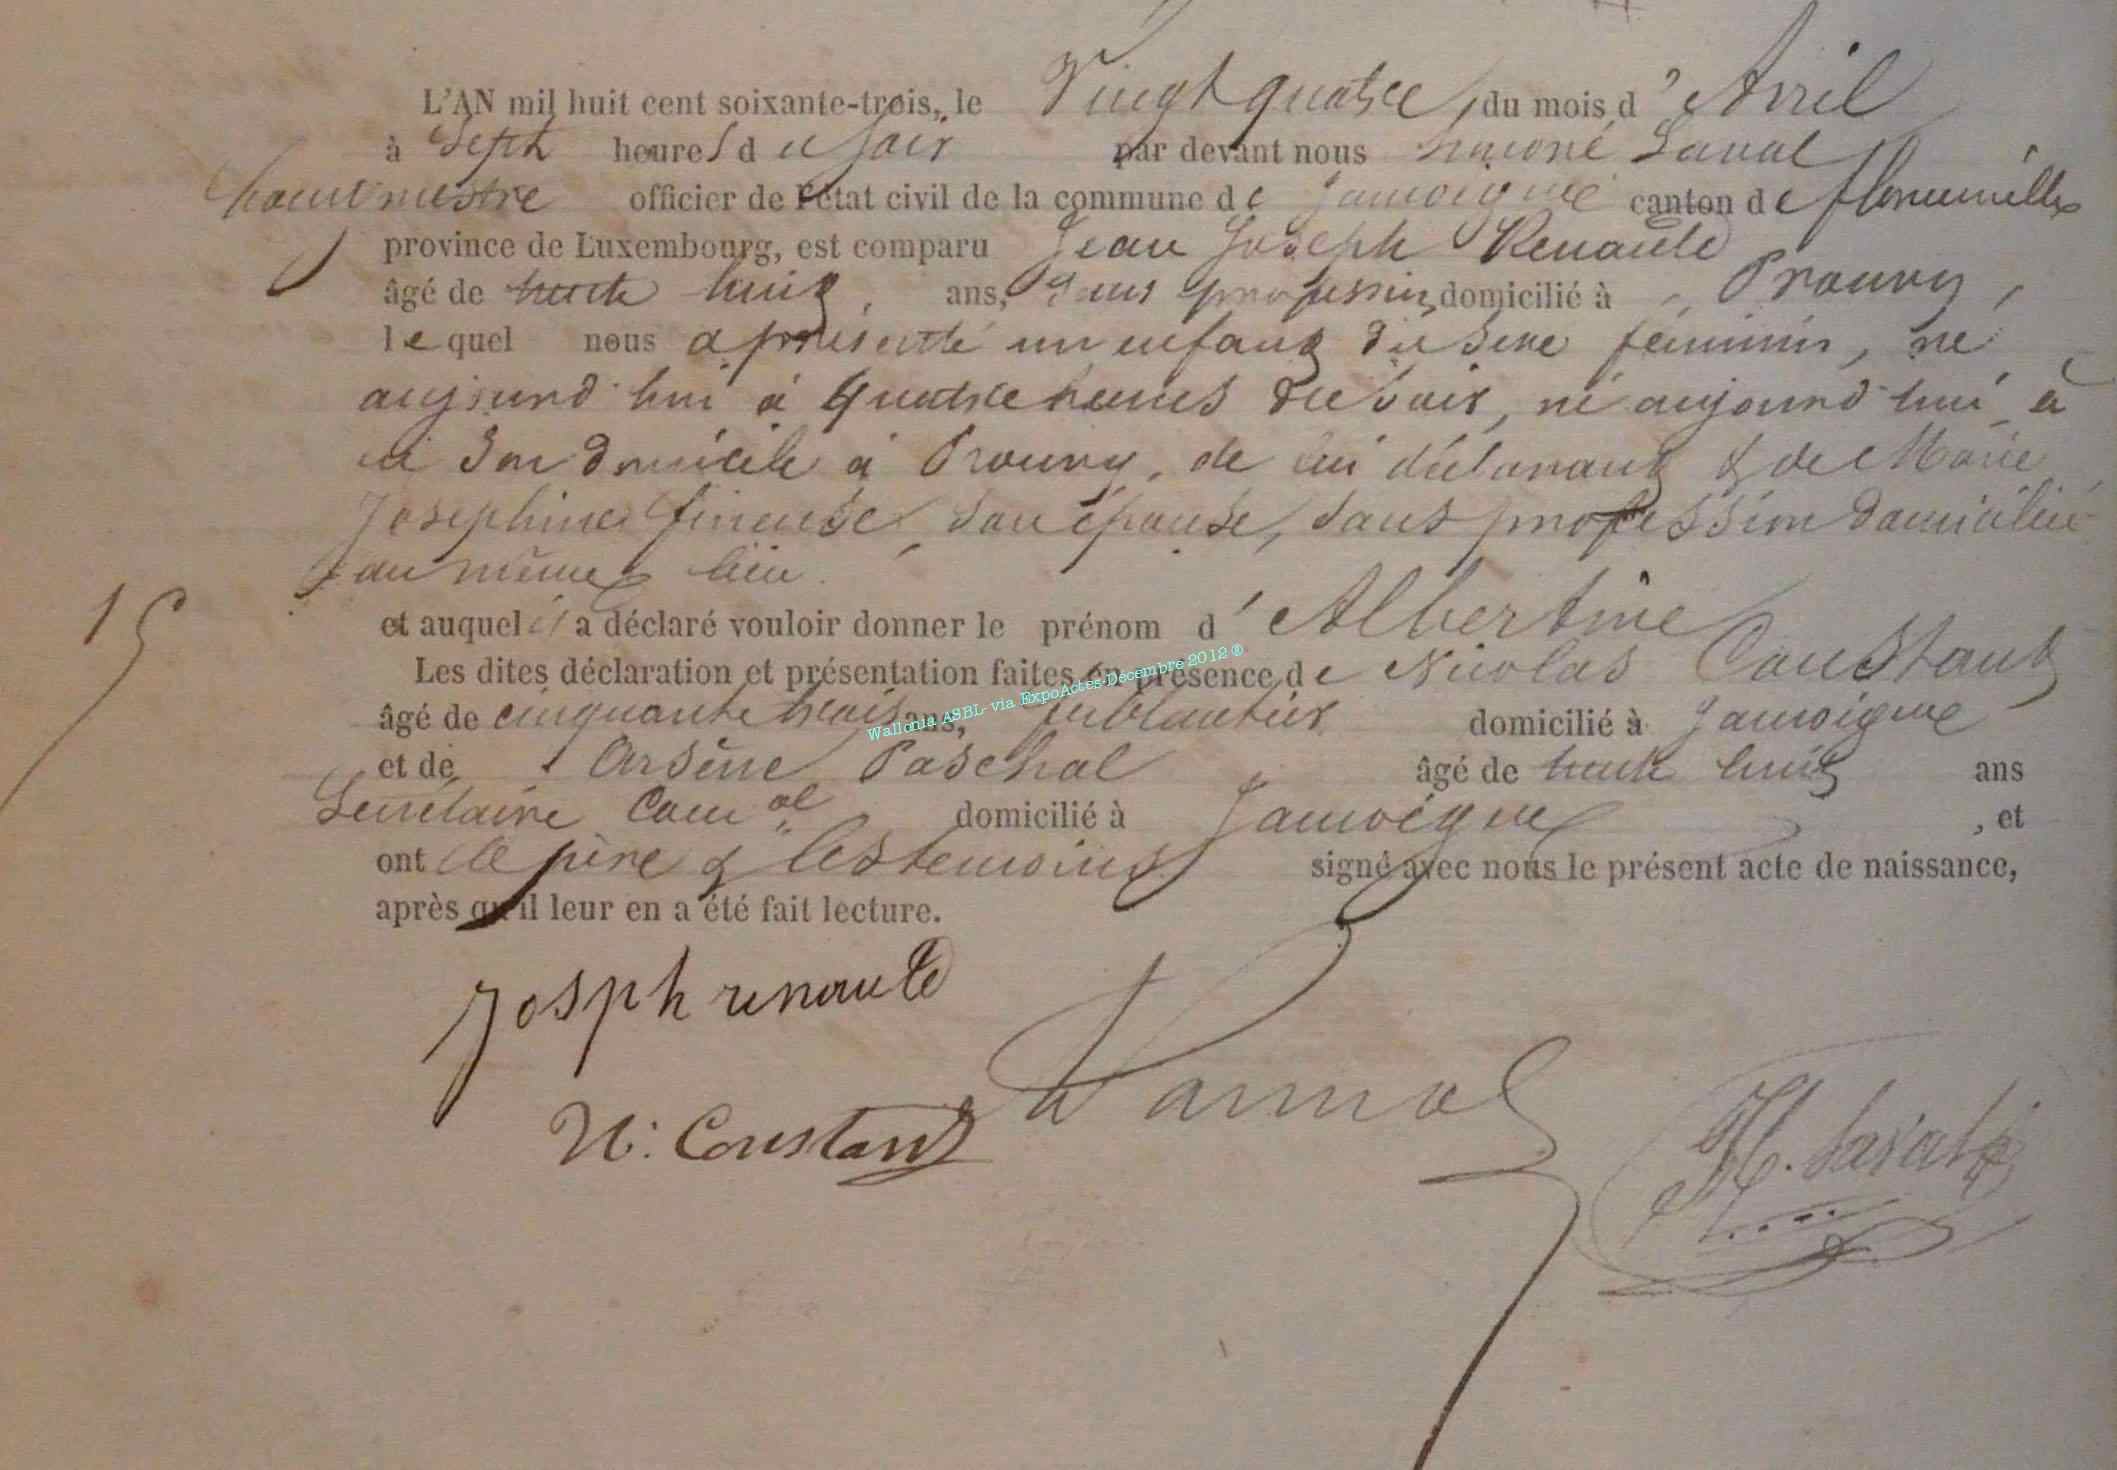 L'AN mil huit cent soixante-trois, le Vingt quatre, du mois d'Avril
à Sept heures du soir par devant nous honoré Laval
bourgmestre officier de l'état civil de la commune de Jamoigne canton de florenville
province de Luxembourg, est comparu Jean Joseph Renauld
âgé de trente huit, ans, sans profession, domicilié à Prouvy,
lequel nous a présenté un enfant du sexe féminin, né
aujourd'hui à quatre heures du soir, né aujourd'hui à
en son domicile à Prouvy, de lui déclarant & de Marie
Josephine son épouse, sans profession domiciliée
au même lieu.
15
et auquel il a déclaré vouloir donner le prénom d'Albertine
Les dites déclaration et présentation faites en présence de Nicolas Constant
âgé de cinquante trois ans, ferblantier domicilié à Jamoigne
Wallonia ASBL- via ExpoActes-Décembre 2012 ®
et de Arsène Paschal âgé de trente huit ans
Secrétaire Comal domicilié à Jamoigne, et
ont le père & les temoins signé avec nous le présent acte de naissance,
après qu'il leur en a été fait lecture.
Josph renauld
N. Constant
H. Laval